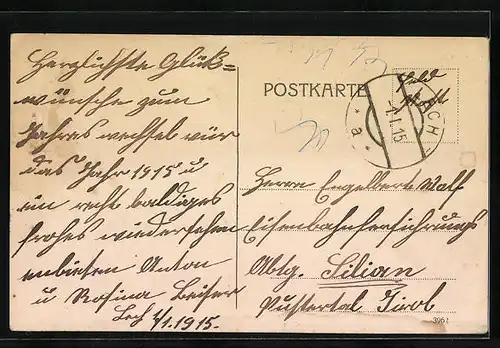 Herzlichste Glück=
wünsche zum
Jahreswechsel für
das Jahr 1915 u
ein recht baldiges
frohes wiedersehen
enbieten Anton
u Rosina Beiser
Lech 1/1. 1915.
POSTKARTE
Feld
Post
LECH
1.I.15
* a *
Herrn Engelbert Walf
Eisenbahnsicherungs
Abtg. Silian
Pustertal Tirol
3961